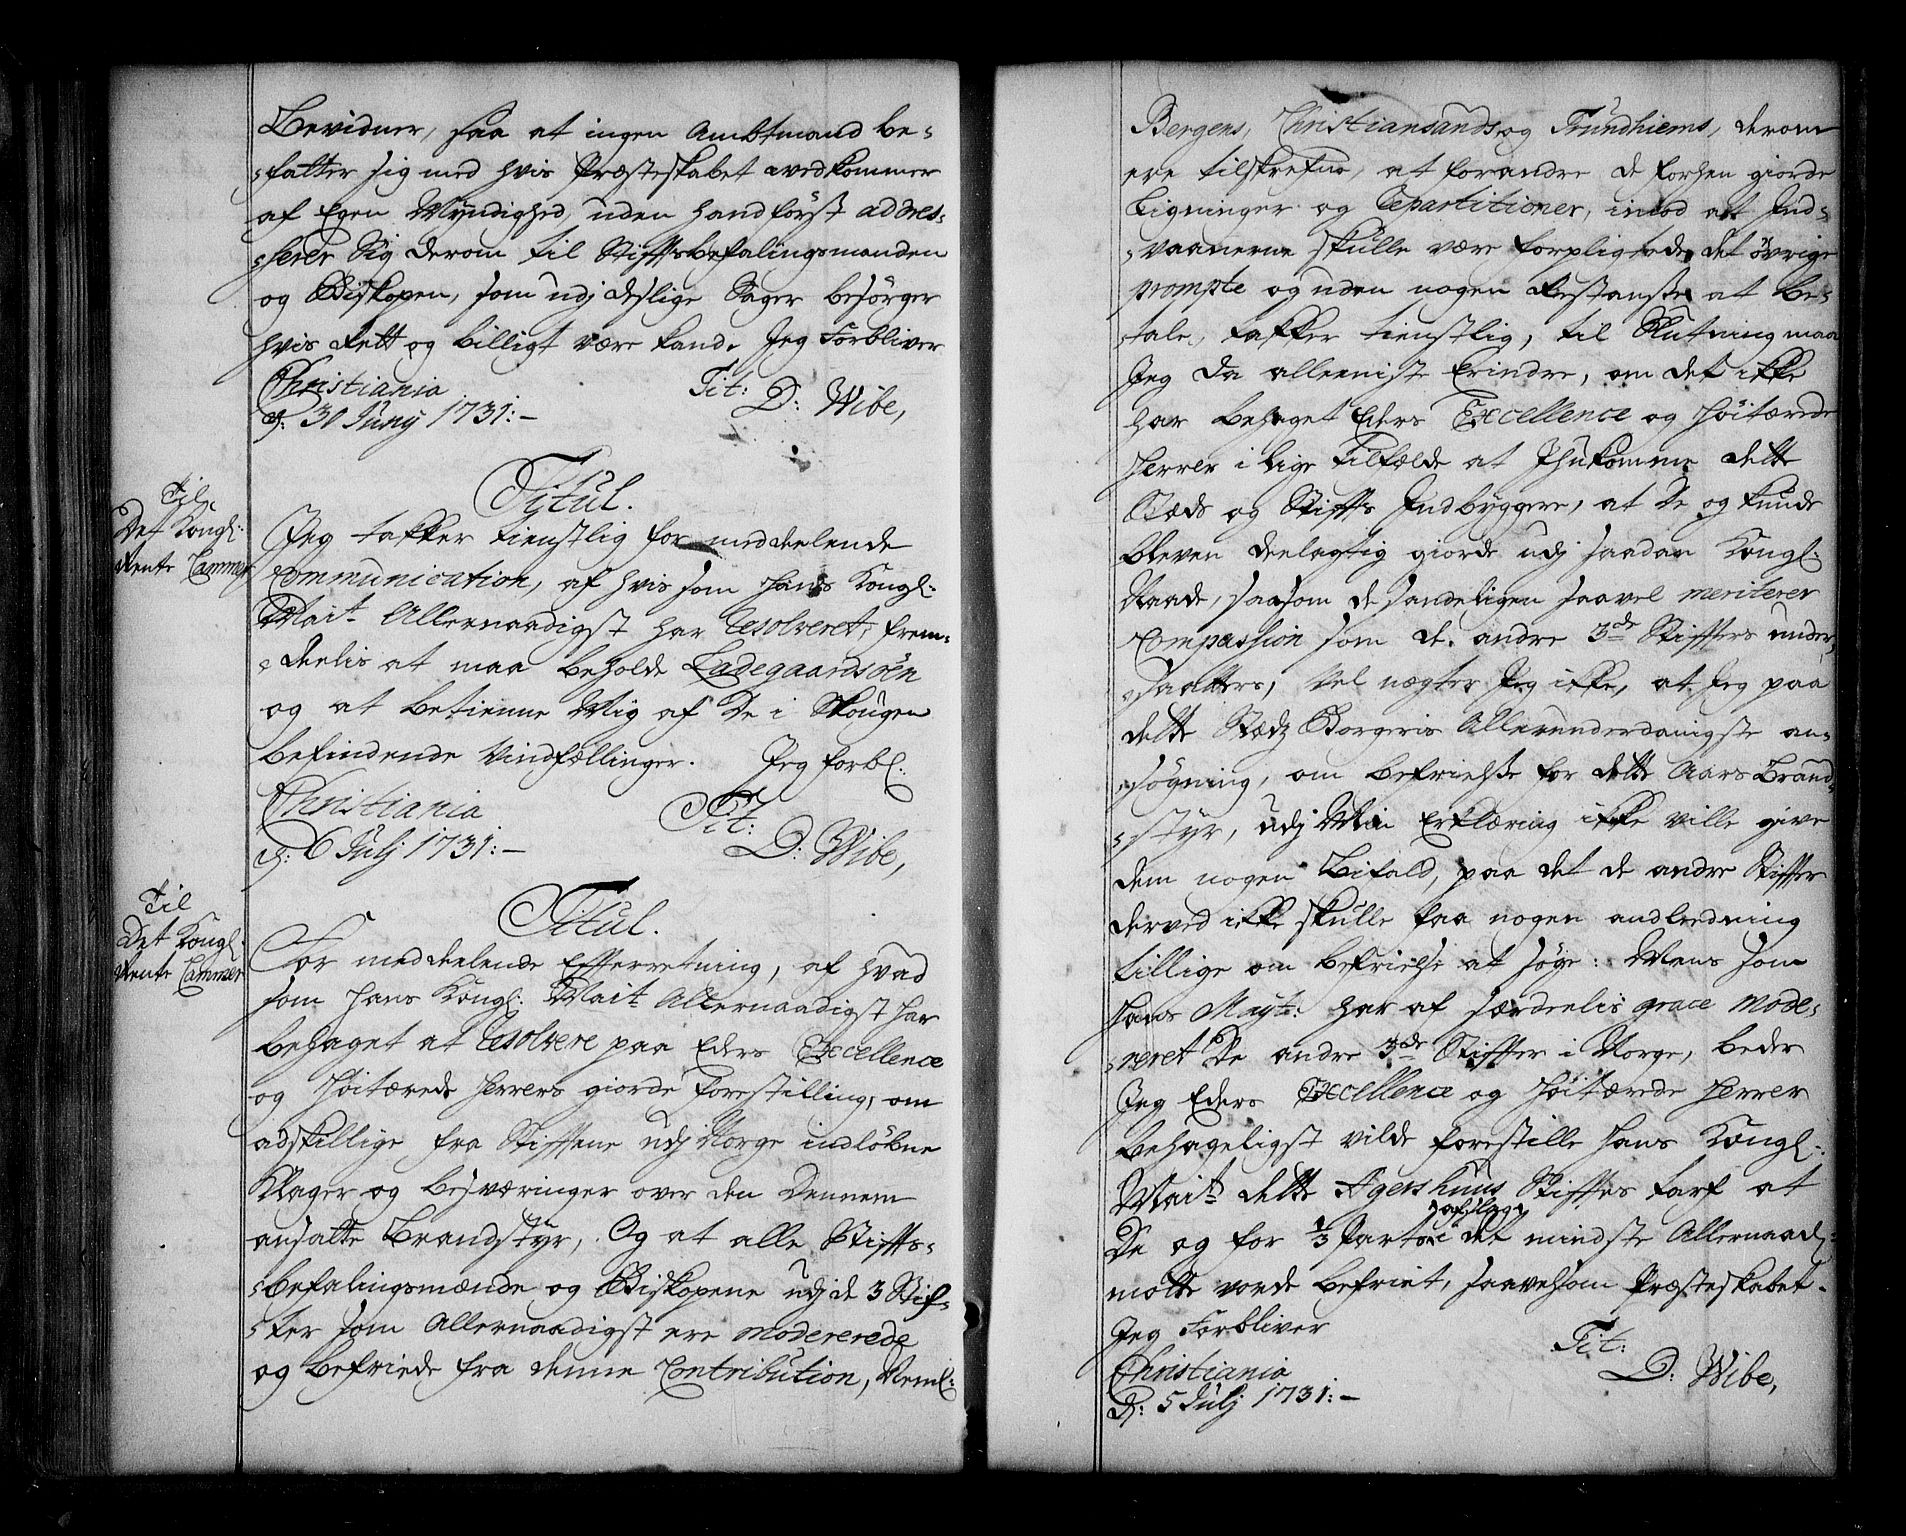 Bevidner, saa at ingen Ambtmand be-
fatter sig med hvis Præsteskabet vedkommer
af Egen Myndighed, uden hand först addres-
serer Sig derom til Stiftsbefalingsmanden
og Biskopen, som udj deslige Sager besörger
hvis Rett og billigt være kand. Jeg Forbliver
Christiania
d: 30 Juny 1731:-
Tit:
D: Wibe,
Til
Det Kongl:
Rente Cammer
Titul.
Jeg takker tienstlig for meddeelende
Communication, af hvis som Hans Kongl:
Mait. Allernaadigst har Resolveret, frem-
deelis at maa beholde Ladegaardsöen
og at betienne Mig af De i Skougen
befindende Vindfællinger. Jeg forbl:
Christiania
d: 6 Julj 1731:-
Tit:
D: Wibe,
Til
Det Kongl.
Rente Cammer
Titul.
For meddeelende Efterretning, af hvad
som Hans Kongl: Mait. Allernaadigst har
behaget at Resolvere paa Eders Excellence
og Höitærede Herrers giorde Forestilling, om
adskillige fra Stifftene udj Norge indlöbne
Klager og besværinger over den dennem
ansatte Brandstyr, Og at alle Stiffts-
befalingsmænde og Biskopene udj de 3 Stif-
ter som Allernaadigst ere modererede
og befriede fra denne Contribution, Neml:
Bergens, Christiansands og Trundhiems, derom
ere tilskrefne, at forandre de forhen giorde
Ligninger og Repartitioner, imod at Ind-
vaanerne skulle være forpligtede det övrige
prompte og uden nogen Restantse at be-
tale, takker tienstlig, til Slutning maa
Jeg da alleeniste Erindre, om det ikke
har behaget Eders Excellence og Höitærede
Herrer i lige Tilfælde at Ihukomme dette
Stæds og Stiffts Indbyggere, at De og kunde
bleven deelagtig giorde udj saadan Kongl:
Naade, saasom de sandeligen saavel meriterer
Compassion som de andre 3de Stiffters under-
saatters, Vel nægter Jeg ikke, at Jeg paa
dette Stædz Borgeris Allerunderdanigste an-
sögning, om befrielse for dette Aars Brand-
styr, udj Min Erklæring ikke ville give
dem nogen Bifald, paa det de andre Stiffter
derved ikke skulle faa nogen andledning
tillige om befrielse at söge: Mens som
Hans Mayt: har af særdeelis grace mode-
reret De andre 3de Stiffter i Norge, beder
Jeg Eders Excellence og Höitærede Herrer
behageligst vilde forestille Hans Kongl:
Mait. dette Agershuus Stifftes tarf at
De og for 1/3 Parts afslag i det mindste Allernaad:
motte vorde befriet, saavelsom Præsteskabet.
Jeg Forbliver
Christiania
d: 5 Julj 1731:-
Tit:
D: Wibe,